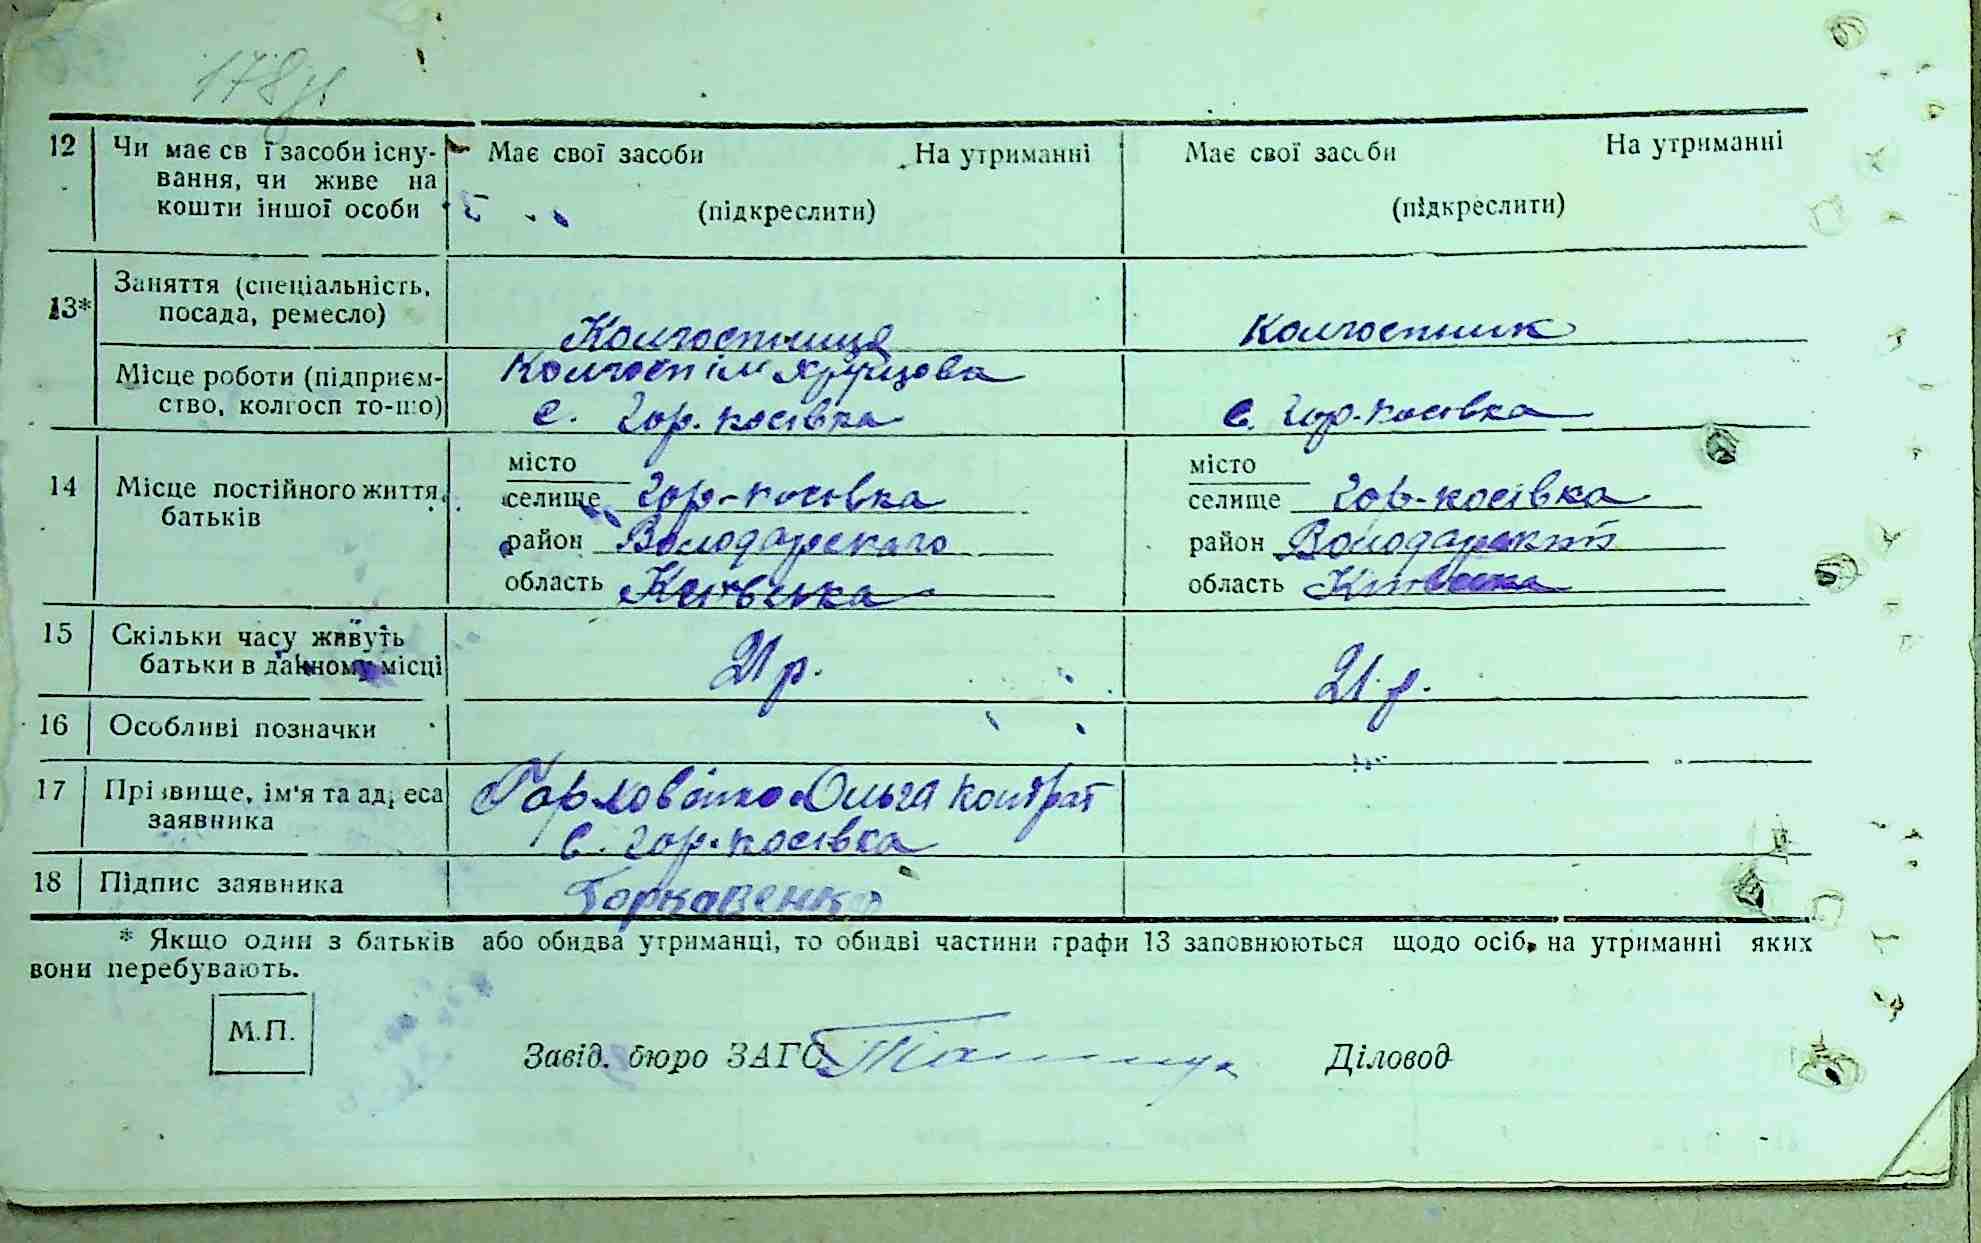 178
12 Чи має св ї засоби існу-
вання, чи живе на
кошти іншої особи
Має свої засоби На утриманні
(підкреслити)
Має свої засоби На утриманні
(підкреслити)
13* Заняття (спеціальність,
посада, ремесло)
Колгоспниця
Колгоспник
Місце роботи (підприєм-
ство, колгосп то-що)
Колгосп ім Хрущова
с. Гор. посівка
с. Гор-посівка
14 Місце постійного життя
батьків
місто
селище Гор-посівка
район Володарского
область Київська
місто
селище Гор-посівка
район Володарский
область Київська
15 Скільки часу живуть
батьки в данному місці
21 р.
21.р.
16 Особливі позначки
17 Прізвище, ім'я та адреса
заявника
Ольга Кондрат
с. Гор-посівка
18 Підпис заявника
Горкавенко
* Якщо один з батьків або обидва утриманці, то обидві частини графи 13 заповнюються щодо осіб, на утриманні яких
вони перебувають.
М.П.
Завід. бюро ЗАГС
Діловод